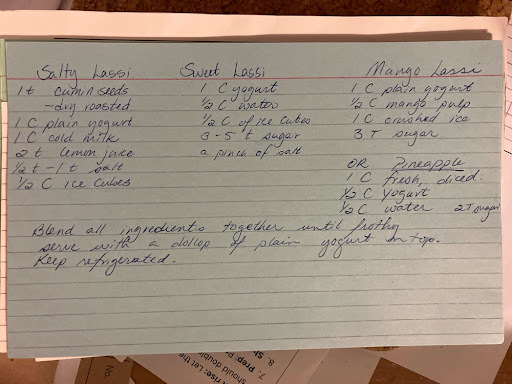 Salty Lassi
1 t cumin seeds
- dry roasted
1 C plain yogurt
1 C cold milk
2 t lemon juice
½ t - 1 t salt
½ C ice cubes
Sweet Lassi
1 C yogurt
½ C water
½ C of ice cubes
3 - 5 t sugar
a pinch of salt
Mango Lassi
1 C plain yogurt
½ C mango pulp
1 C crushed ice
3 T sugar
OR Pineapple
1 C fresh, diced
½ C yogurt
½ C water 2T sugar
Blend all ingredients together until frothy
serve with a dollop of plain yogurt on top.
Keep refrigerated.
rise: Let the
should double
7. Prep
8. Sh
No.